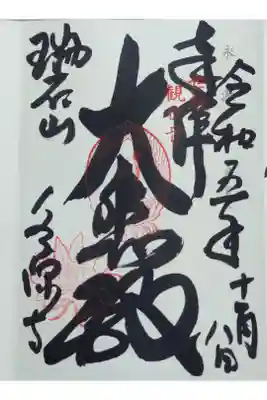 令和五年十月八日
奉拝
大悲殿
瑞石山
永源寺